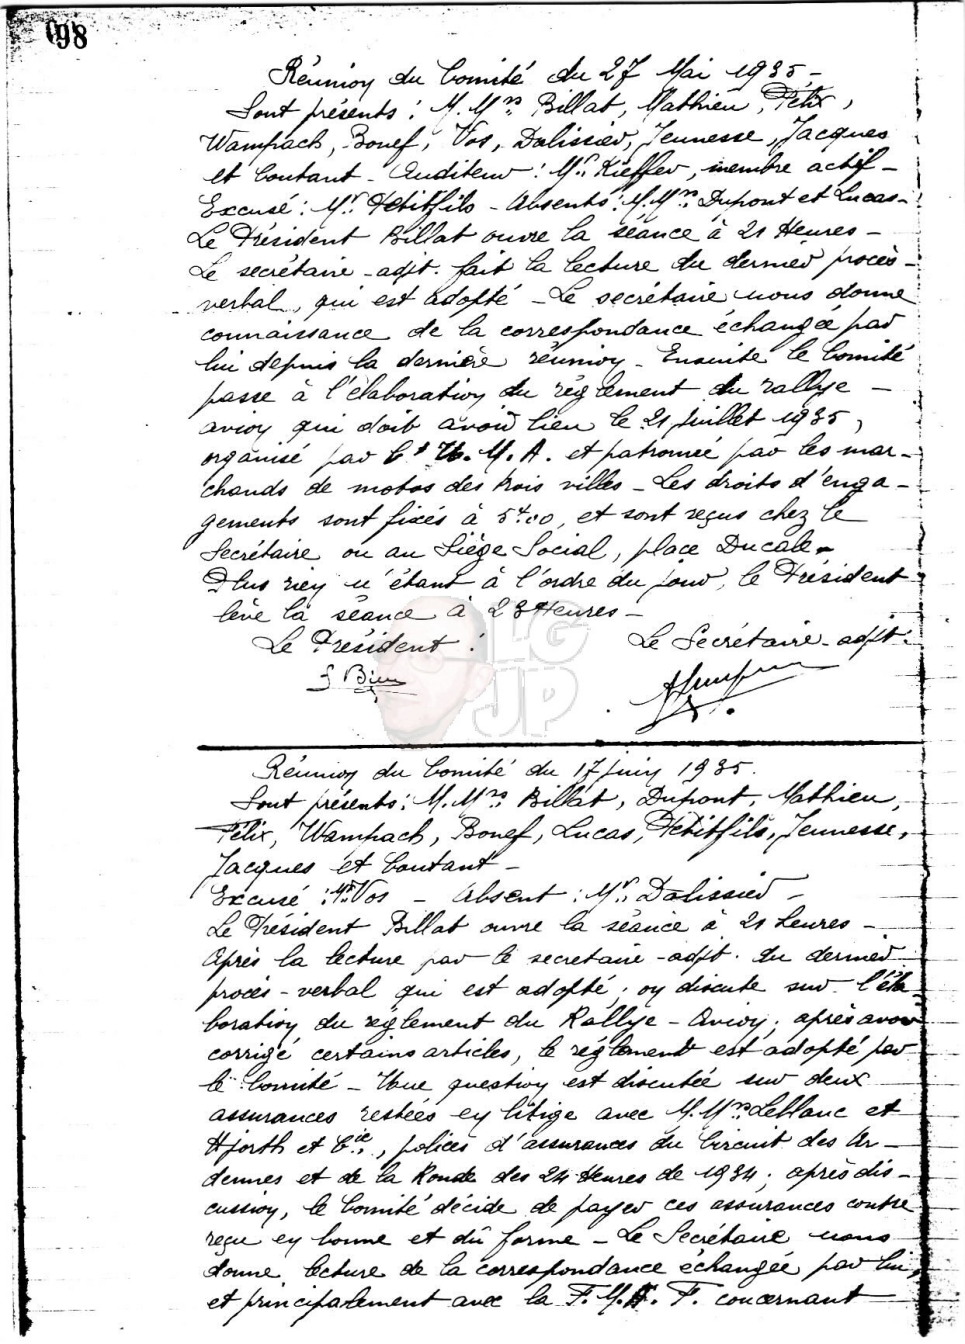 98
Réunion du Comité du 27 Mai 1935 -
Sont présents : M.Mrs Billat, Mathieu, Félix,
Wampach, Bonef, Vos, Dalissier, Jeunesse, Jacques
et Coutant - Auditeur : Mr. Kieffer, membre actif -
Excusé : Mr Petitfils - Absents : M.Mrs Dupont et Lucas -
Le Président Billat ouvre la séance à 21 Heures -
Le secrétaire - adjt. fait la lecture du dernier procès -
verbal, qui est adopté - Le secrétaire nous donne
connaissance de la correspondance échangée par
lui depuis la dernière réunion - Ensuite le Comité
passe à l'élaboration du règlement du rallye -
avion qui doit avoir lieu le 21 Juillet 1935,
organisé par l' U. M. A. et patronné par les mar -
chands de motos des trois villes - Les droits d'enga -
gements sont fixés à 5f00, et sont reçus chez le
Secrétaire ou au Siège Social, place Ducale -
Plus rien n'étant à l'ordre du jour, le Président
lève la séance à 23 Heures -
Le Président : Le Secrétaire - adjt :
LG
JP
Réunion du Comité du 17 Juin 1935.
Sont présents : M.Mrs Billat, Dupont, Mathieu,
Félix, Wampach, Bonef, Lucas, Petitfils, Jeunesse,
Jacques et Coutant -
Excusé : Mr Vos - Absent : Mr. Dalissier -
Le Président Billat ouvre la séance à 21 heures -
Après la lecture par le secretaire - adjt. du dernier
procès - verbal qui est adopté, on discute sur l'éla
boration du règlement du Rallye - Avion, après avoir
corrigé certains articles, le règlement est adopté par
le Comité - Une question est discutée sur deux
assurances restées en litige avec M.Mrs Leblanc et
Hjorth et Cie, polices d'assurances du Circuit des Ar -
dennes et de la Ronde des 24 Heures de 1934, après dis -
cussion, le Comité décide de payer ces assurances contre
reçu en bonne et dû forme - Le Secrétaire nous
donne lecture de la correspondance échangée par lui,
et principalement avec la F. M. F. concernant